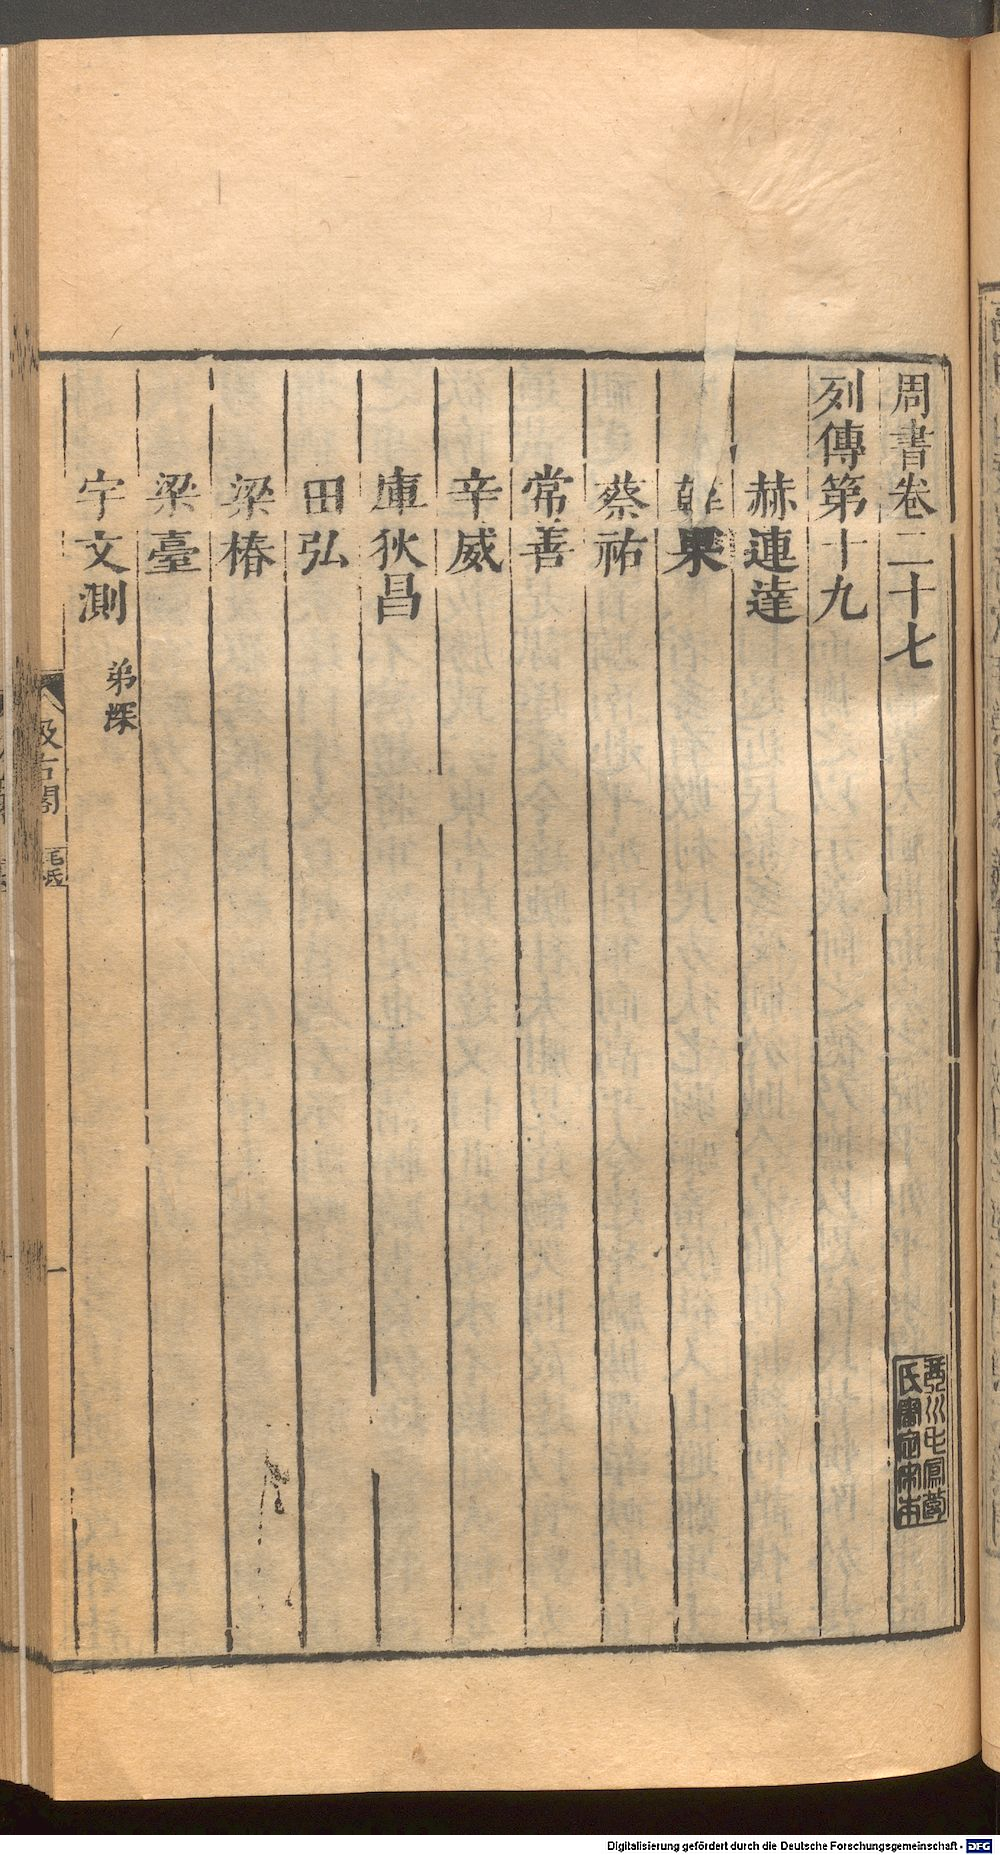 周書卷二十七
列傳第十九
赫連達
韓果
蔡祐
常善
辛威
庫狄昌
田弘
梁椿
梁臺
宇文測 弟深
汲古閣
毛氏
一
Digitalisierung gefördert durch die Deutsche Forschungsgemeinschaft - DFG